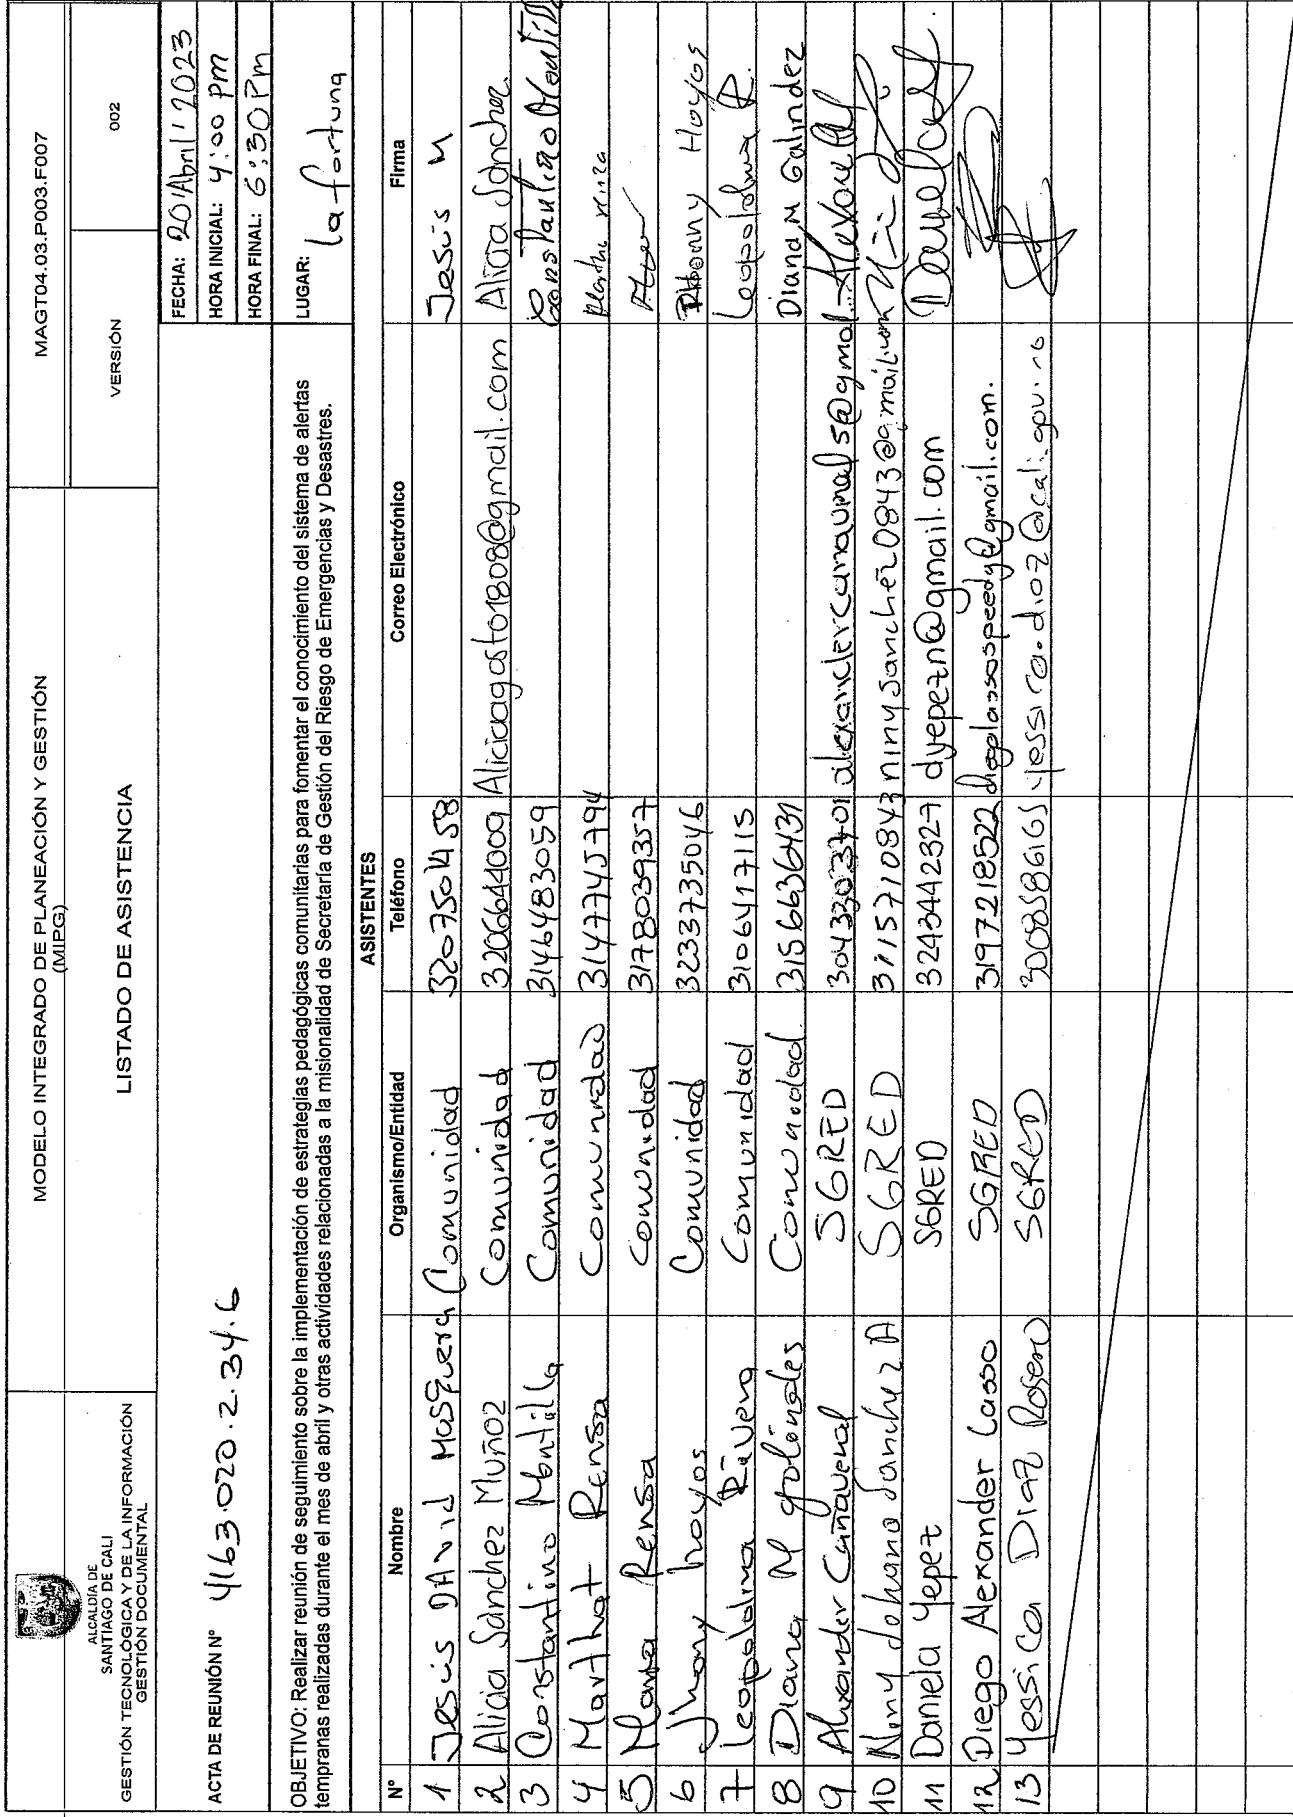 ALCALDÍA DE
SANTIAGO DE CALI
GESTIÓN TECNOLÓGICA Y DE LA INFORMACIÓN
GESTIÓN DOCUMENTAL
MODELO INTEGRADO DE PLANEACIÓN Y GESTIÓN
(MIPG)
LISTADO DE ASISTENCIA
MAGT04.03.P003.F007
VERSIÓN 002
ACTA DE REUNIÓN N° 4163.020.2.34.6
FECHA: 20/Abril/2023
HORA INICIAL: 4:00 pm
HORA FINAL: 6:30 Pm
OBJETIVO: Realizar reunión de seguimiento sobre la implementación de estrategias pedagógicas comunitarias para fomentar el conocimiento del sistema de alertas
tempranas realizadas durante el mes de abril y otras actividades relacionadas a la misionalidad de Secretaría de Gestión del Riesgo de Emergencias y Desastres.
LUGAR: la fortuna
ASISTENTES
N° Nombre Organismo/Entidad Teléfono Correo Electrónico Firma
1 Jesús DAvid Mosquera Comunidad 3207501458 Jesús M
2 Alicia Sánchez Muñoz Comunidad 3206644009 Aliciaagosto1808@gmail.com Alicia Sánchez
3 Constantino Montilla Comunidad 3146483059 Constantino Montilla
4 Martha Rensa Comunidad 3147745794 Martha renza
5 María Rensa comunidad 3178039357
6 Jhony hoyos Comunidad 3233735046 Jhonny Hoyos
7 Leopoldina Rivera Comunidad 3106417115 Leopoldina R.
8 Diana M Galindes Comunidad 3156636431 Diana M Galindez
9 Alexander Cañaveral SGRED 3043303701
10 Niny Johana Sanchez A SGRED 3115710843 ninysanchez0843@gmail.com
11 Daniela Yepez SGRED 3234442327 dyepezn@gmail.com
12 Diego Alexander Lasso SGRED 3197218522 diegolassospeedy@gmail.com.
13 Yessica Diaz Rosero SGRED 3008586165 yessica.diaz@cali.gov.co